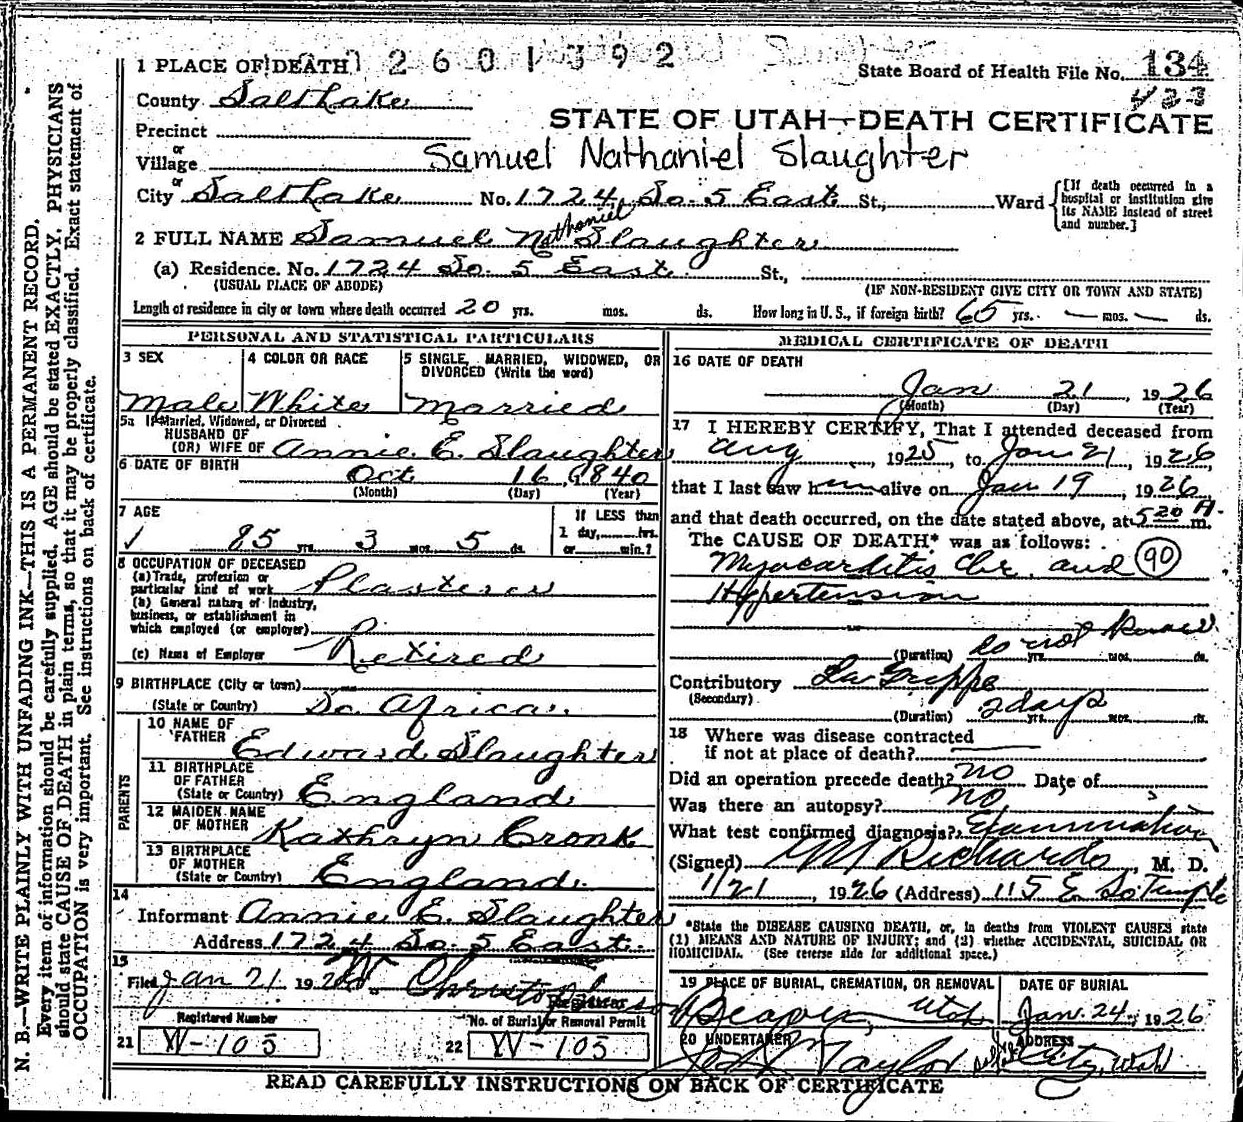 N. B.—WRITE PLAINLY WITH UNFADING INK—THIS IS A PERMANENT RECORD.
Every item of information should be carefully supplied. AGE should be stated EXACTLY. PHYSICIANS
should state CAUSE OF DEATH in plain terms, so that it may be properly classified. Exact statement of
OCCUPATION is very important. See instructions on back of certificate.
1 PLACE OF DEATH 2601392
State Board of Health File No. 134
423
County Salt Lake
STATE OF UTAH—DEATH CERTIFICATE
Precinct
or
Village
Samuel Nathaniel Slaughter
or
City Salt Lake No. 1724 So. 5 East St., Ward
[If death occurred in a
hospital or institution give
its NAME instead of street
and number.]
Nathaniel
2 FULL NAME Samuel N. Slaughter
(a) Residence. No. 1724 So. 5 East St.,
(USUAL PLACE OF ABODE) (IF NON-RESIDENT GIVE CITY OR TOWN AND STATE)
Length of residence in city or town where death occurred 20 yrs. mos. ds. How long in U. S., if foreign birth? 65 yrs. — mos. — ds.
PERSONAL AND STATISTICAL PARTICULARS
3 SEX
Male
4 COLOR OR RACE
White
5 SINGLE, MARRIED, WIDOWED, OR
DIVORCED (Write the word)
Married
5a If Married, Widowed, or Divorced
HUSBAND OF
(OR) WIFE OF Annie E. Slaughter
6 DATE OF BIRTH
Oct 16, 1840
(Month) (Day) (Year)
7 AGE
85 yrs. 3 mos. 5 ds.
If LESS than
1 day, hrs.
or min.?
8 OCCUPATION OF DECEASED
(a) Trade, profession or
particular kind of work Plasterer
(b) General nature of industry,
business, or establishment in
which employed (or employer)
(c) Name of Employer Retired
9 BIRTHPLACE (City or town)
(State or Country) So. Africa
PARENTS
10 NAME OF
FATHER Edward Slaughter
11 BIRTHPLACE
OF FATHER
(State or Country) England
12 MAIDEN NAME
OF MOTHER Kathryn Cronk
13 BIRTHPLACE
OF MOTHER
(State or Country) England
14
Informant Annie E. Slaughter
Address 1724 So. 5 East.
15
Filed Jan 21 1926
Registrar
Registered Number No. of Burial or Removal Permit
21 W-105 22 W-105
MEDICAL CERTIFICATE OF DEATH
16 DATE OF DEATH
Jan 21, 1926
(Month) (Day) (Year)
17 I HEREBY CERTIFY, That I attended deceased from
Aug, 1925, to Jan 21, 1926,
that I last saw him alive on Jan 19, 1926
and that death occurred, on the date stated above, at 5 20 A. m.
The CAUSE OF DEATH* was as follows:
Myocarditis Chr. and 90
Hypertension
(Duration) do not know yrs. mos. ds.
Contributory La Grippe
(Secondary)
(Duration) 2 days yrs. mos. ds.
18 Where was disease contracted
if not at place of death?
Did an operation precede death? no Date of
Was there an autopsy? no
What test confirmed diagnosis? Examination
(Signed) M Richards, M. D.
1/21, 1926 (Address) 115 E So Temple
*State the DISEASE CAUSING DEATH, or, in deaths from VIOLENT CAUSES state
(1) MEANS AND NATURE OF INJURY; and (2) whether ACCIDENTAL, SUICIDAL OR
HOMICIDAL. (See reverse side for additional space.)
19 PLACE OF BURIAL, CREMATION, OR REMOVAL
Beaver, Utah
DATE OF BURIAL
Jan. 24, 1926
20 UNDERTAKER
Taylor
ADDRESS
City, Utah
READ CAREFULLY INSTRUCTIONS ON BACK OF CERTIFICATE